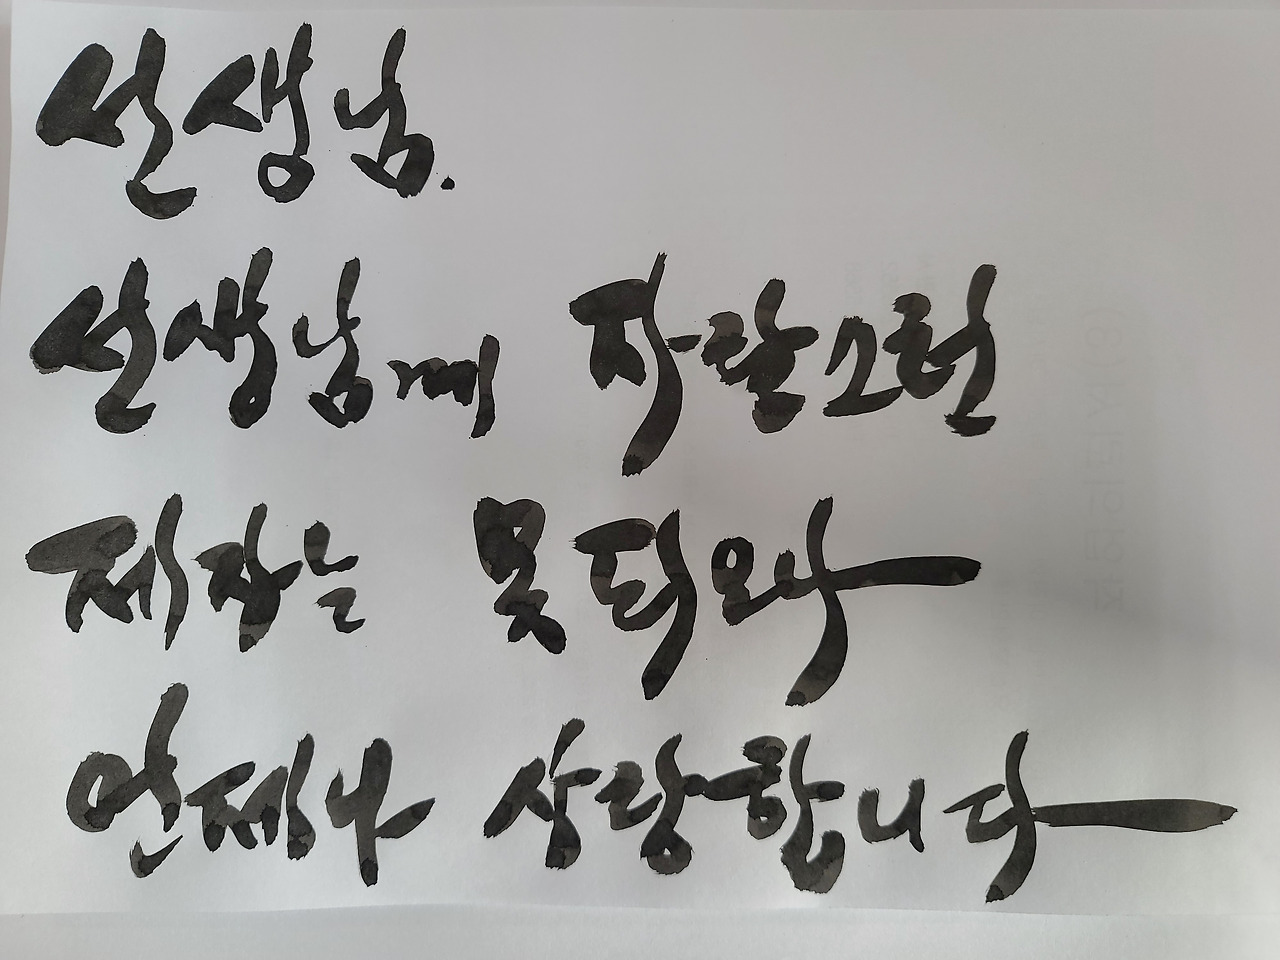 선생님.
선생님께 자랑스런
제자는 못되와
언제나 사랑합니다